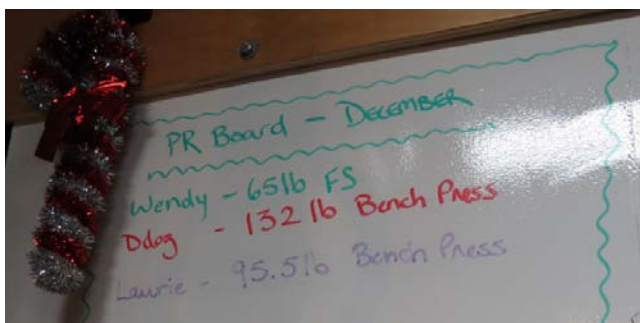 PR Board - DECEMBER
Wendy - 65lb FS
Ddog - 132 lb Bench Press
Laurie - 95.5lb Bench Press